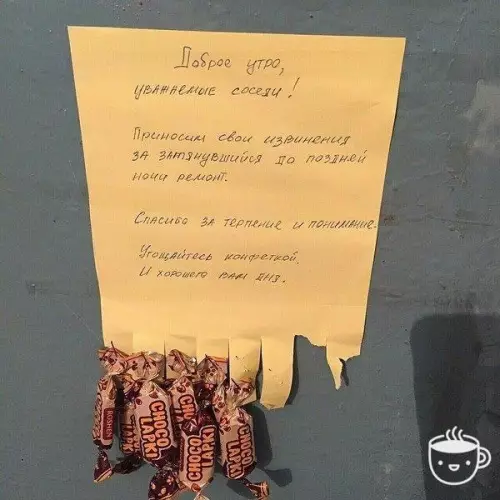 Доброе утро,
уважаемые соседи!
Приносим свои извинения
за затянувшийся до поздней
ночи ремонт.
Спасибо за терпение и понимание.
Угощайтесь конфеткой.
И хорошего вам дня.
CHOCO
LAPKI
CHOCO
LAPKI
CHOCO
LAPKI